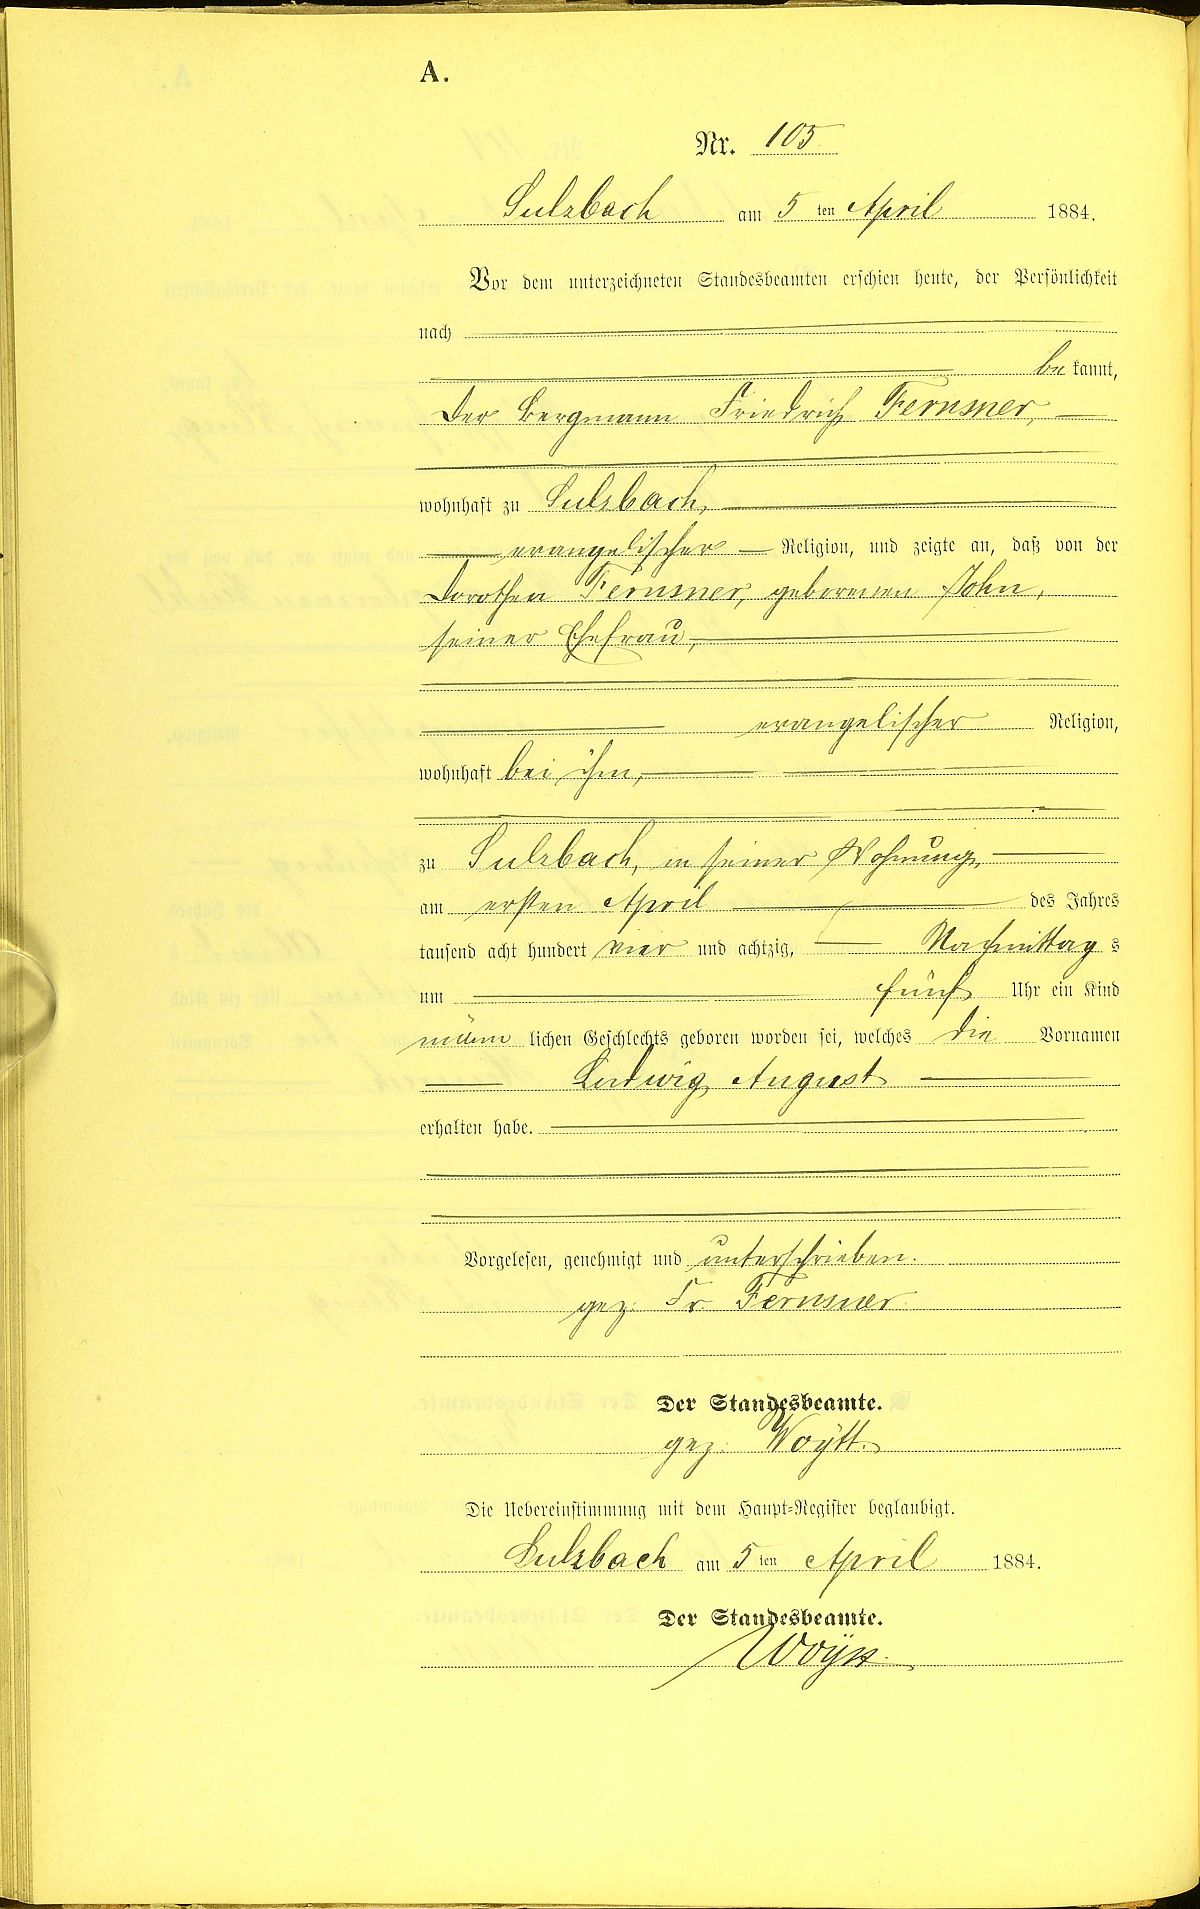 A.
Nr. 105
Sulzbach am 5 ten April 1884.
Vor dem unterzeichneten Standesbeamten erschien heute, der Persönlichkeit
nach
be kannt,
der Bergmann Friedrich Fernsner,
wohnhaft zu Sulzbach,
evangelischer Religion, und zeigte an, daß von der
Dorothea Fernsner, geborenen John,
seiner Ehefrau,
evangelischer Religion,
wohnhaft bei ihm,
zu Sulzbach, in seiner Wohnung,
am ersten April des Jahres
tausend acht hundert vier und achtzig, Nachmittag s
um fünf Uhr ein Kind
männ lichen Geschlechts geboren worden sei, welches die Vornamen
Ludwig August
erhalten habe.
Vorgelesen, genehmigt und unterschrieben.
gez: Fr. Fernsner.
Der Standesbeamte.
gez: Woytt.
Die Uebereinstimmung mit dem Haupt-Register beglaubigt.
Sulzbach am 5 ten April 1884.
Der Standesbeamte.
Woytt.